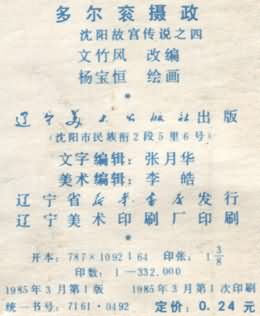 多尔衮摄政
沈阳故宫传说之四
文竹风 改编
杨宝恒 绘画
辽宁美术出版社出版
(沈阳市民族街2段5里6号)
文字编辑: 张月华
美术编辑: 李皓
辽宁省新华书店发行
辽宁美术印刷厂印刷
开本: 787×1092 1/64 印张: 1 3/8
印数: 1—332,000
1985年3月第1版 1985年3月第1次印刷
统一书号: 7161·0492 定价: 0.24元